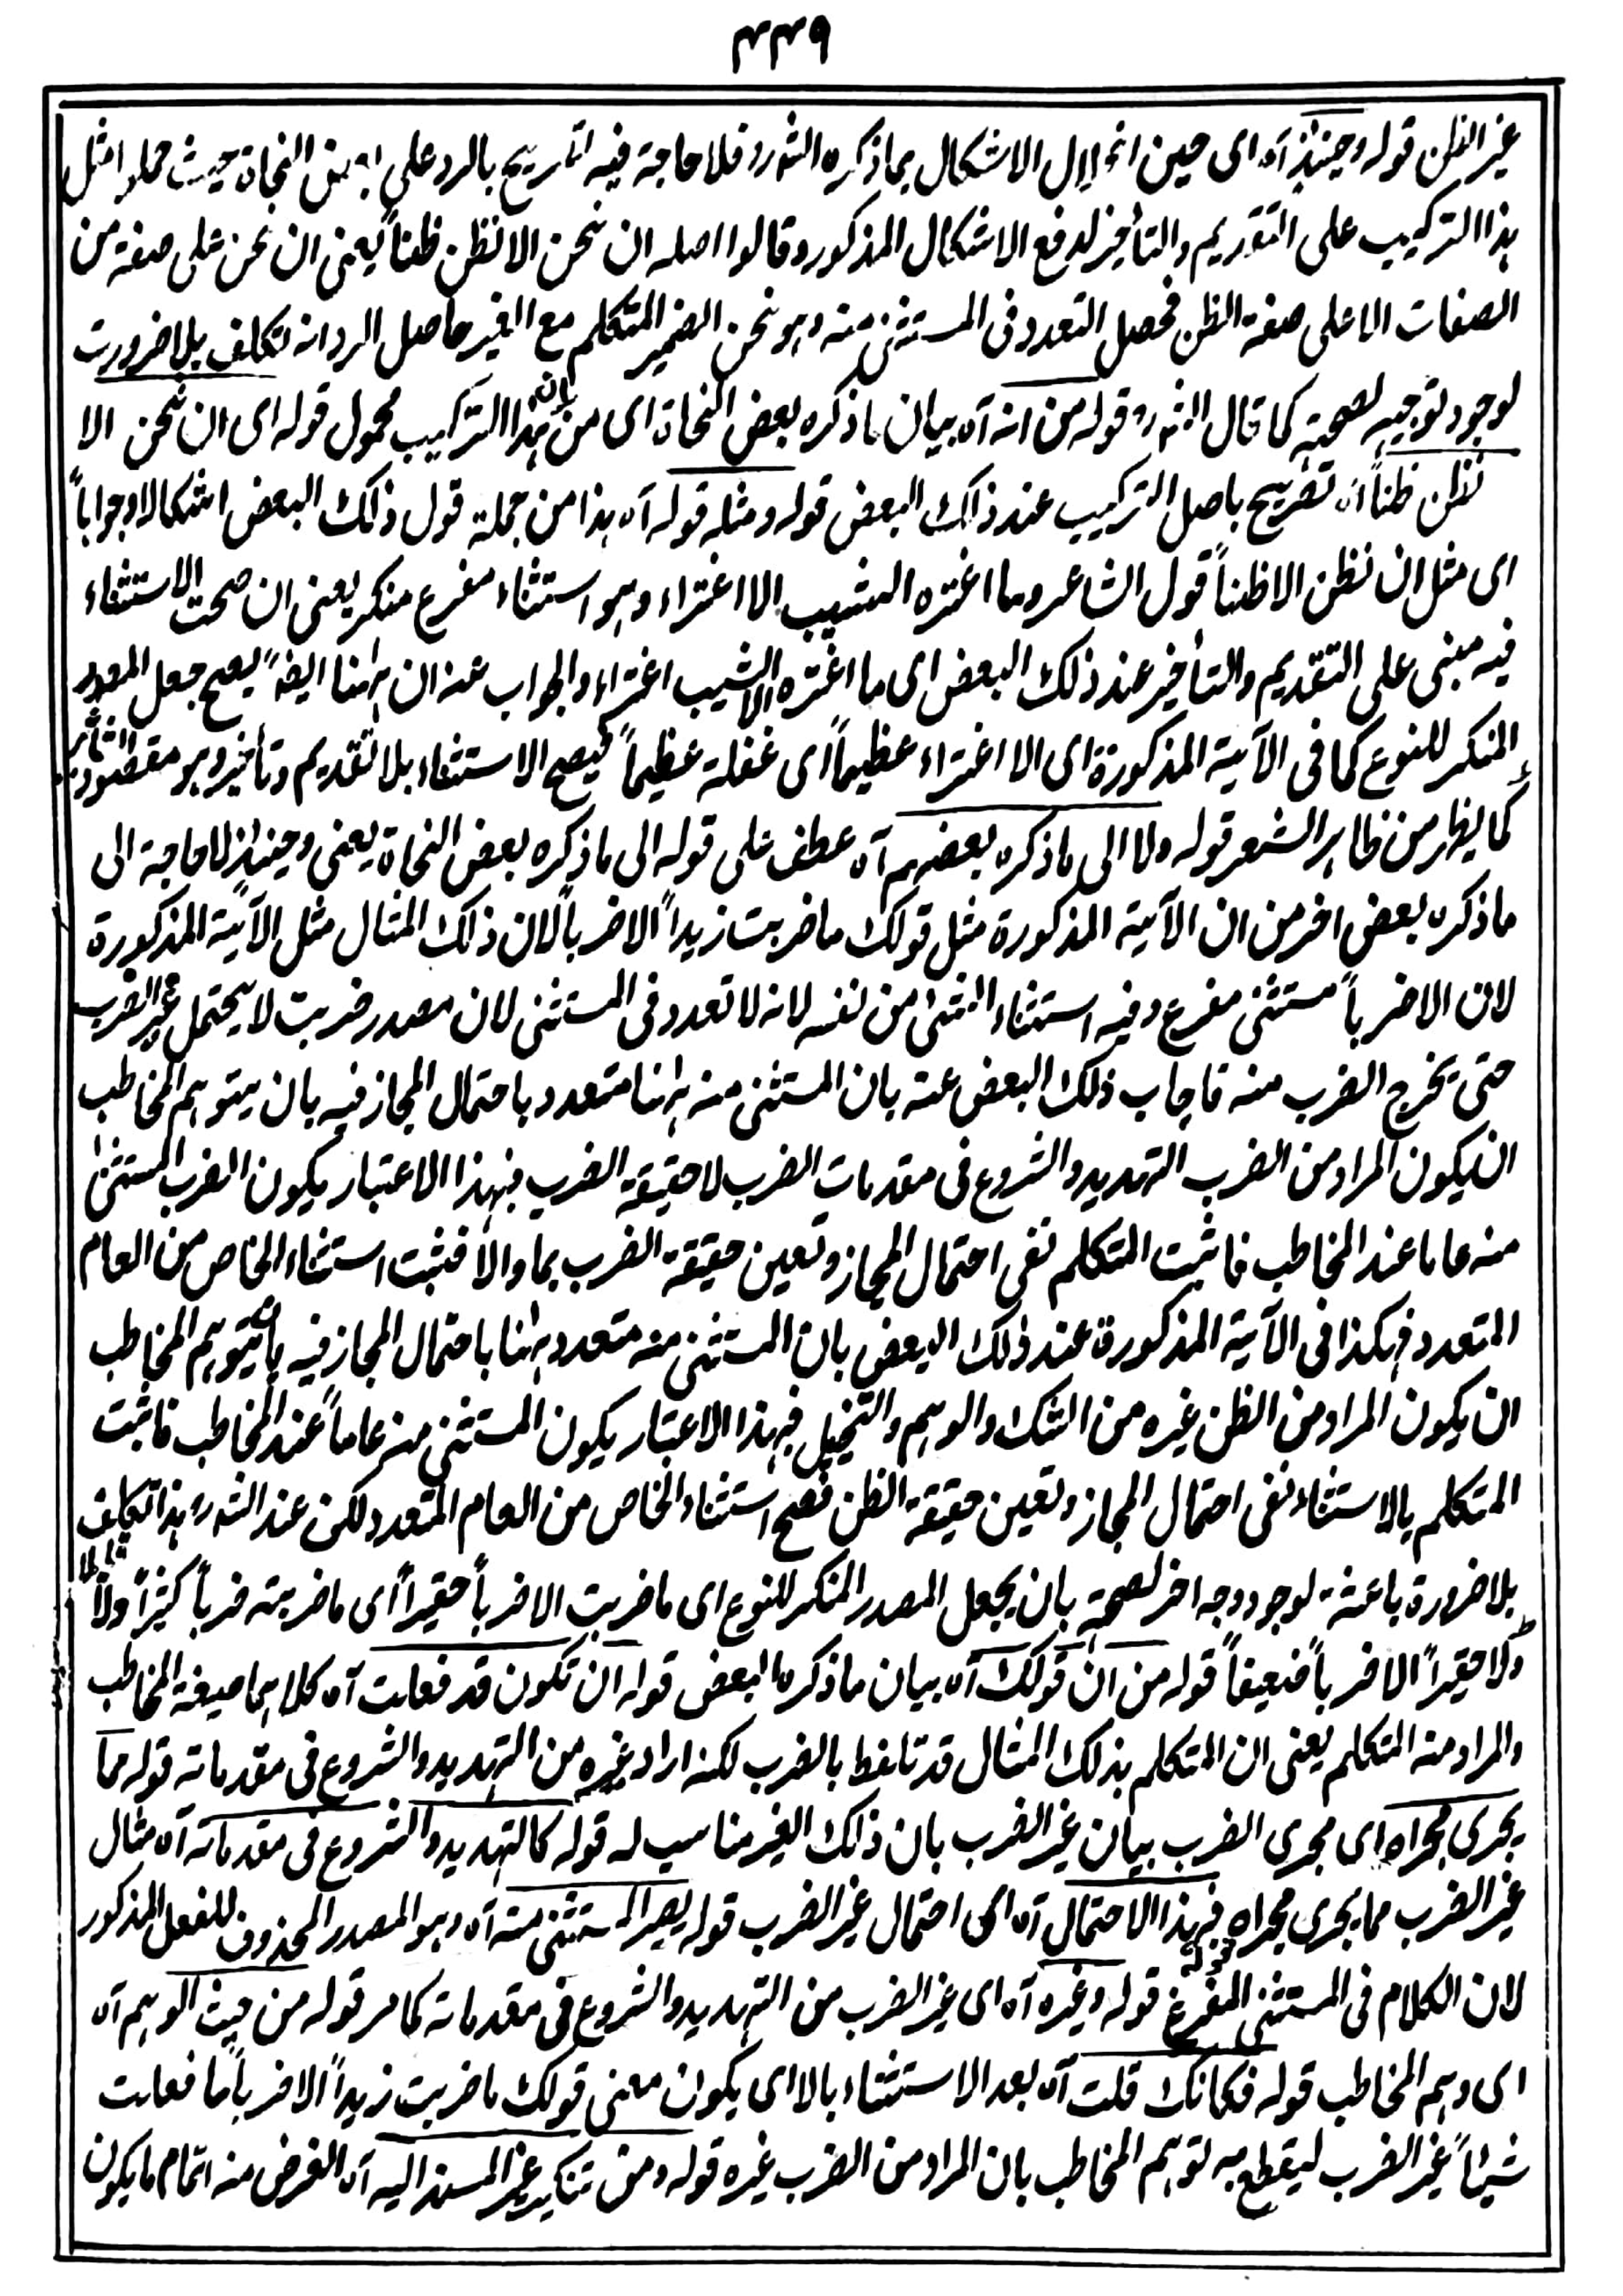 ۴۴۹
غير الظن قوله وحينئذ آه اى حين انحلال الاشكال بما ذكره الشورد فلا حاجة فيه تصريح بالرد على بعض النحاة حيث حملوا مثل
هذا التركيب على التقديم والتأخير لدفع الاشكال المذكور وقالوا اصله ان نحن الا نظن ظناً يعنى ان نحن على صفة من
الصفات الا على صفة الظن فحصل التعدد فى المستثنى منه وهو نحن الضمير المتكلم مع الغير حاصل الرد انه تكلف بلا ضرورت
لوجود توجيه لصحته كما قال الشورد قوله من انه آه بيان ما ذكره بعض النحاة اى من ان هذا التركيب محمول قوله اى ان نحن الا
نظن ظناً آه تصريح باصل التركيب عند ذلك البعض قوله ومثله قوله آه هذا من جملة قول ذلك البعض اشكالا وجواباً
اى مثل ان نظن الا ظناً قول الشاعر وما اغتره الشيب الا اغتراء وهو استثناء مفرغ منكر يعنى ان صحت الاستثناء
فيه مبنى على التقديم والتأخير عند ذلك البعض اى ما اغتره الا الشيب اغتراء والجواب عنه ان ههنا ايضاً يصح جعل المصدر
المنكر للنوع كما فى الآية المذكورة اى الا اغتراء عظيماً اى غفلة عظيماً فيصح الاستثناء بلا تقديم وتأخير وهو مقصود الشاعر
كما يظهر من ظاهر الشعر قوله ولا الى ما ذكره بعضهم آه عطف على قوله الى ما ذكره بعض النحاة يعنى وحينئذ لا حاجة الى
ما ذكره بعض اخر من ان الآية المذكورة مثل قولك ما ضربت زيداً الا ضرباً لان ذلك المثال مثل الآية المذكورة
لان الا ضرباً مستثنى مفرغ وفيه استثناء الشئ من نفسه لانه لا تعدد فى المستثنى لان مصدر ضربت لا يحتمل غير الضرب
حتى يخرج الضرب منه فاجاب ذلك البعض عنه بان المستثنى منه ههنا متعدد باحتمال المجاز فيه بان يتوهم المخاطب
ان يكون المراد من الضرب التهديد والشروع فى مقدمات الضرب لا حقيقة الضرب فبهذا الاعتبار يكون الضرب المستثنى
منه عاما عند المخاطب فاثبت المتكلم نفى احتمال المجاز وتعين حقيقة الضرب بما والا فثبت استثناء الخاص من العام
المتعدد فهكذا فى الآية المذكورة عند ذلك البعض بان المستثنى منه متعدد ههنا باحتمال المجاز فيه بان يتوهم المخاطب
ان يكون المراد من الظن غيره من الشك والوهم والتخيل فبهذا الاعتبار يكون المستثنى منه عاماً عند المخاطب فاثبت
المتكلم بالاستثناء نفى احتمال المجاز وتعين حقيقة الظن فصح استثناء الخاص من العام المتعدد لكن عند الشورد هذا تكلف
بلا ضرورة باعثة لوجود وجه اخر لصحته بان يجعل المصدر المنكر للنوع اى ما ضربت الا ضرباً حقيراً اى ما ضربته ضرباً كثيراً ولا
ولا حقيراً الا ضرباً ضعيفاً قوله من ان قولك آه بيان ما ذكره البعض قوله ان تكون قد فعلت آه كلاهما صيغة المخاطب
والمراد منه المتكلم يعنى ان المتكلم بذلك المثال قد تلفظ بالضرب لكنه اراد غيره من التهديد والشروع فى مقدماته قوله مما
يجرى مجراه اى مجرى الضرب بيان غير الضرب بان ذلك الغير مناسب له قوله كالتهديد والشروع فى مقدماته آه مثال
غير الضرب مما يجرى مجراه قوله فبهذا الاحتمال آه اى احتمال غير الضرب قوله يصير المستثنى منه آه وهو المصدر المحذوف للفعل المذكور
لان الكلام فى المستثنى المفرغ قوله وغيره آه اى غير الضرب من التهديد والشروع فى مقدماته كما مر قوله من حيث الوهم آه
اى وهم المخاطب قوله فكانك قلت آه بعد الاستثناء بالا اى يكون معنى قولك ما ضربت زيداً الا ضرباً ما فعلت
شيئاً غير الضرب ليقطع به توهم المخاطب بان المراد من الضرب غيره قوله ومن تنكير غير المسند اليه آه الغرض منه اتمام ما يكون